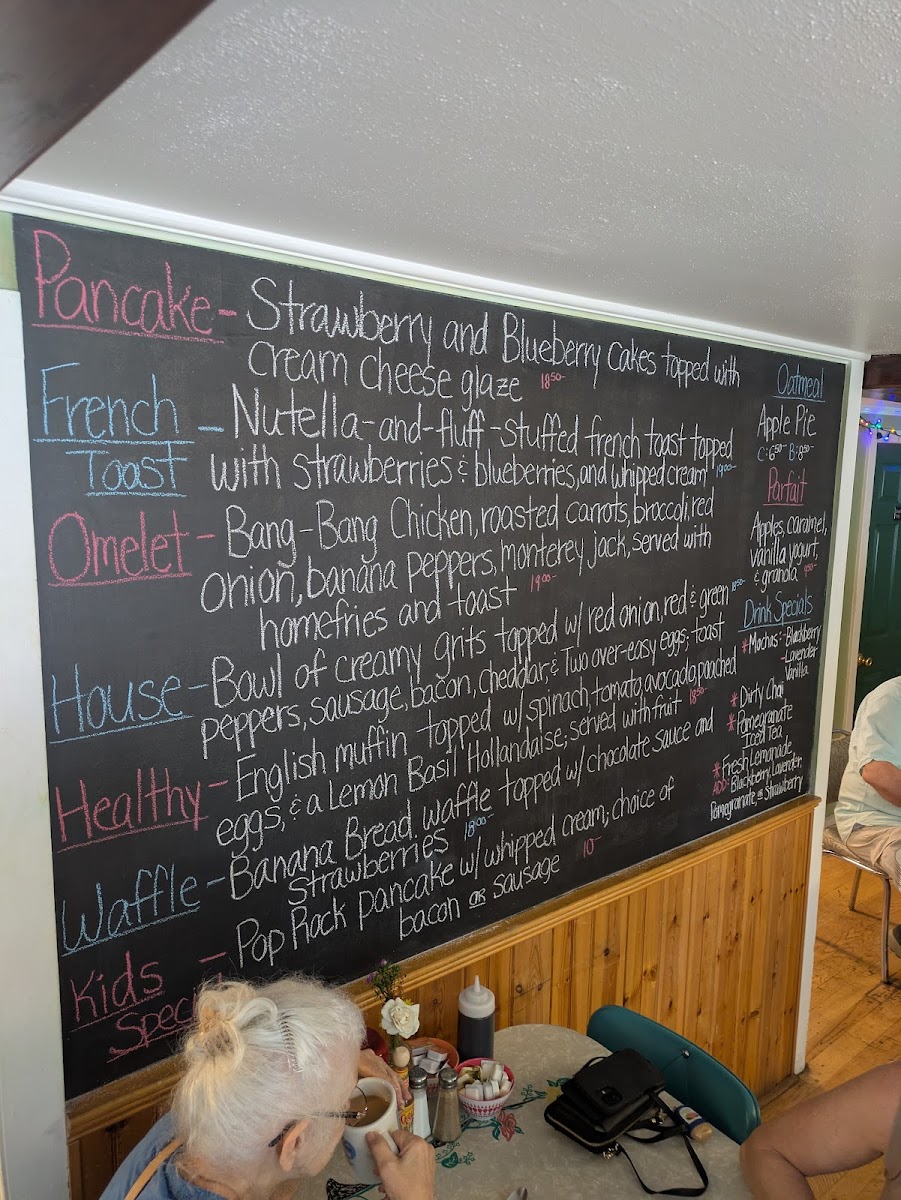 Pancake - Strawberry and Blueberry Cakes topped with
cream cheese glaze 18.50-
French - Nutella-and-fluff-stuffed french toast topped
Toast with strawberries & blueberries, and whipped cream 19.00-
Omelet - Bang-Bang Chicken, roasted carrots, broccoli, red
onion, banana peppers, monterey jack, served with
homefries and toast 19.00-
House - Bowl of creamy grits topped w/ red onion, red & green 18.50-
peppers, sausage, bacon, cheddar, & Two over-easy eggs; toast
Healthy - English muffin topped w/ spinach, tomato, avocado, poached
eggs, & a Lemon Basil Hollandaise; served with fruit 18.50-
Waffle - Banana Bread waffle topped w/ chocolate sauce and
strawberries 18.00-
Kids - Pop Rock pancake w/ whipped cream; choice of
Special bacon or sausage 10-
Oatmeal
Apple Pie
C: 6.50- B: 8.50-
Parfait
Apples, caramel,
vanilla yogurt,
& granola 9.50-
Drink Specials
* Mochas: - Blackberry
- Lavender
Vanilla
* Dirty Chai
* Pomegranate
Iced Tea
* Fresh Lemonade
ADD: Blackberry, Lavender,
Pomegranate, or Strawberry